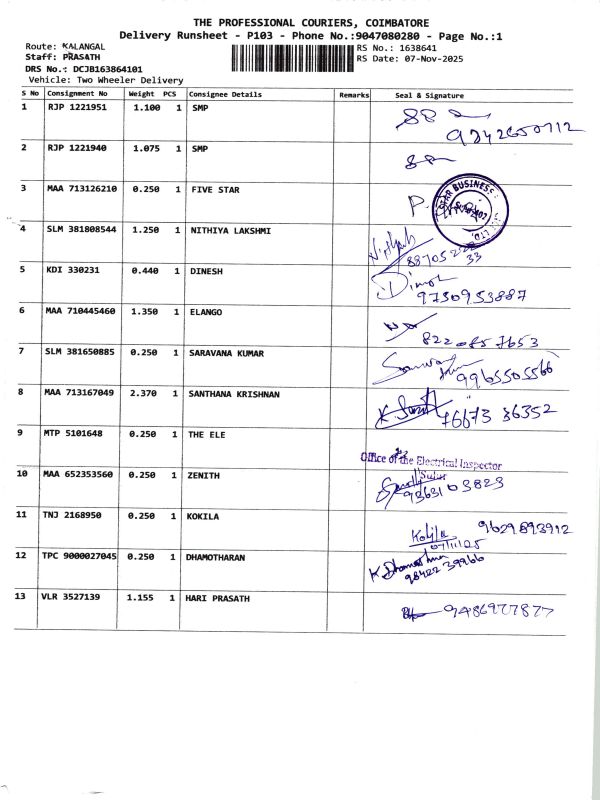 THE PROFESSIONAL COURIERS, COIMBATORE
Delivery Runsheet - P103 - Phone No.:9047080280 - Page No.:1
Route: KALANGAL
Staff: PRASATH
DRS No.: DCJB163864101
Vehicle: Two Wheeler Delivery
RS No.: 1638641
RS Date: 07-Nov-2025
S No Consignment No Weight PCS Consignee Details Remarks Seal & Signature
1 RJP 1221951 1.100 1 SMP
2 RJP 1221940 1.075 1 SMP
3 MAA 713126210 0.250 1 FIVE STAR
STAR BUSINESS
4 SLM 381808544 1.250 1 NITHIYA LAKSHMI
5 KDI 330231 0.440 1 DINESH
9750953887
6 MAA 710445460 1.350 1 ELANGO
7 SLM 381650885 0.250 1 SARAVANA KUMAR
9965505566
8 MAA 713167049 2.370 1 SANTHANA KRISHNAN
76673 36352
9 MTP 5101648 0.250 1 THE ELE
Office of the Electrical Inspector
10 MAA 652353560 0.250 1 ZENITH
9363103823
11 TNJ 2168950 0.250 1 KOKILA
Kokila 9629893912
07/11/25
12 TPC 9000027045 0.250 1 DHAMOTHARAN
98422 39966
13 VLR 3527139 1.155 1 HARI PRASATH
9486977877